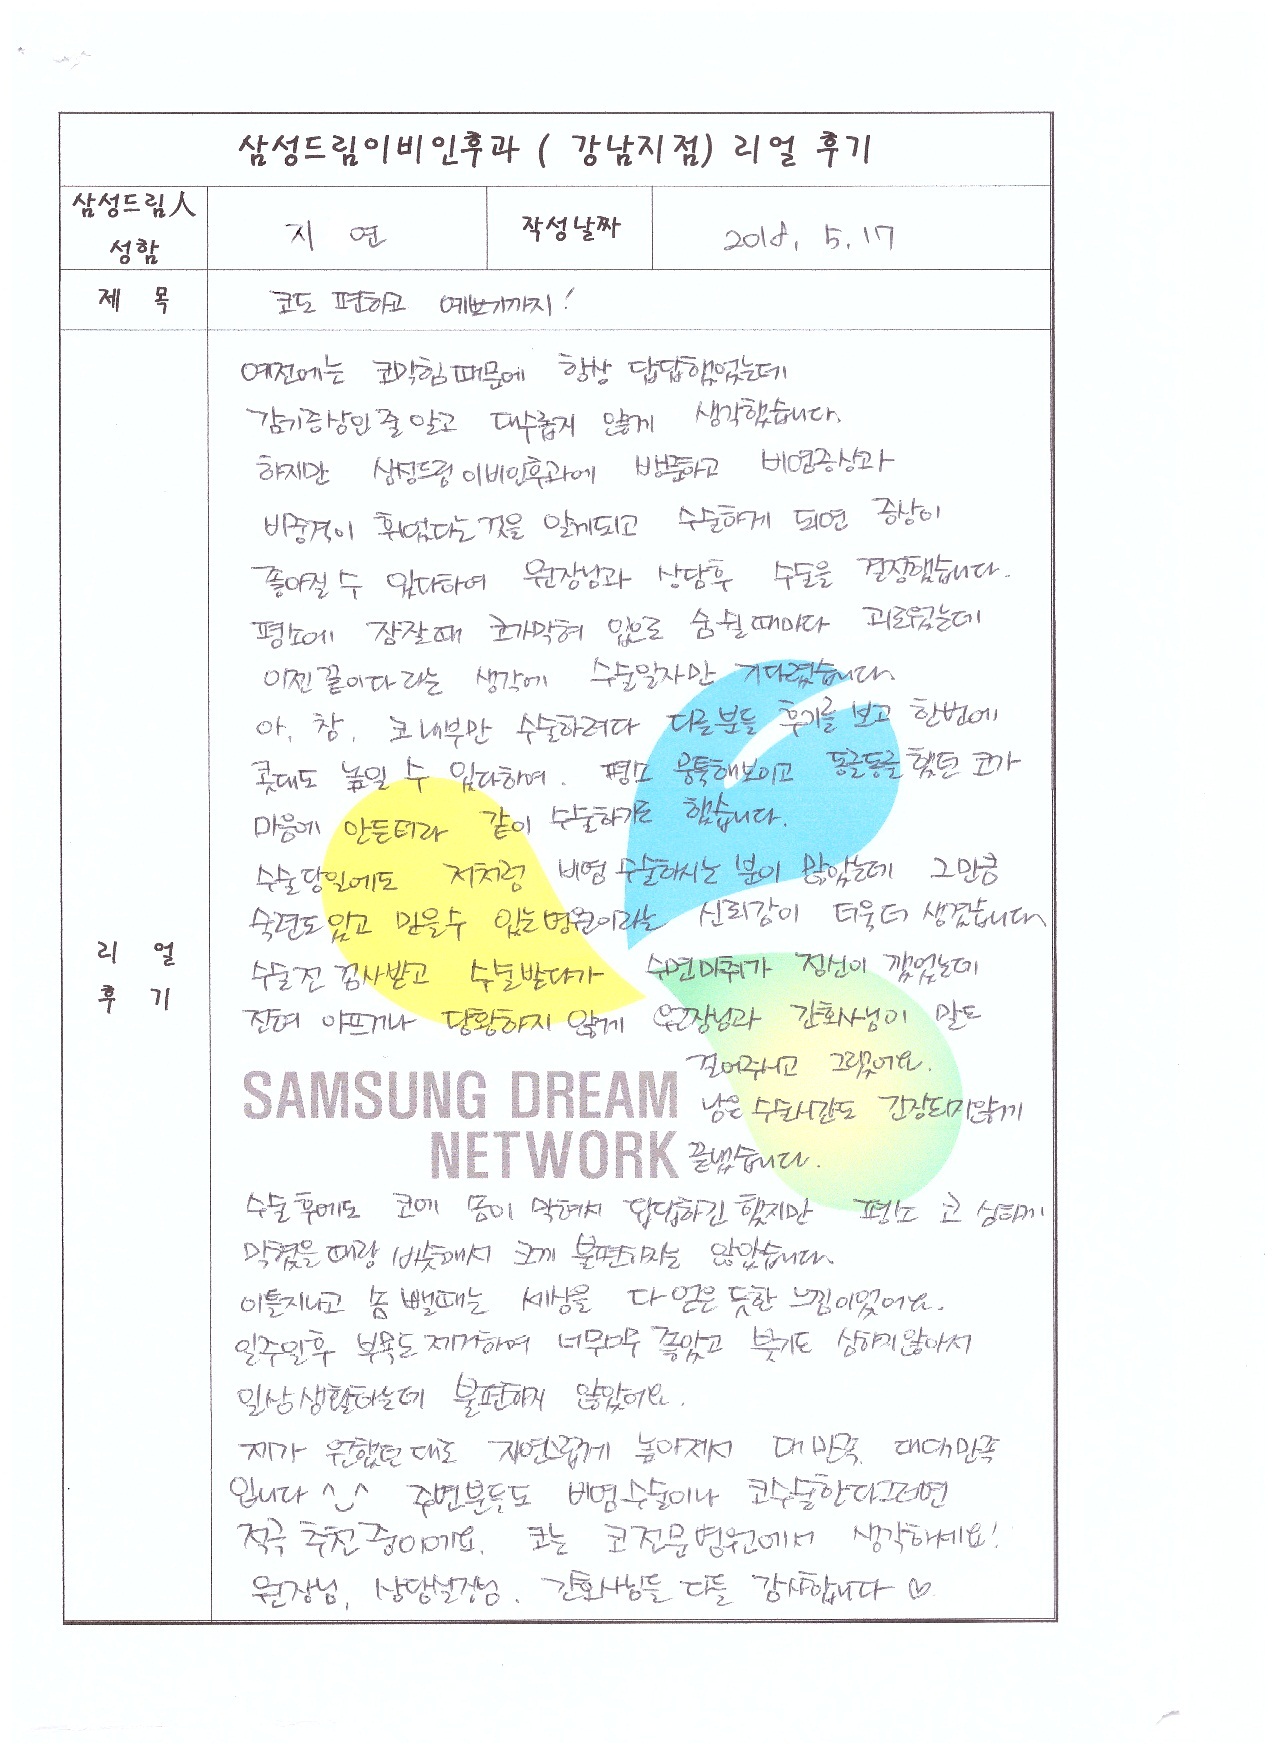 삼성드림이비인후과 ( 강남지점) 리얼 후기
삼성드림人 성함
지 연
작성날짜
2018. 5. 17
제 목
코도 편하고 예쁘기까지!
리 얼
후 기
예전에는 코막힘때문에 항상 답답했었는데
감기증상인줄알고 대수롭지 않게 생각했습니다.
하지만 삼성드림이비인후과에 방문하고 비염증상과
비중격이 휘었다는것을 알게되고 수술하게 되면 증상이
좋아질 수 있다하여 원장님과 상담후 수술을 결정했습니다.
평소에 잠잘때 코가막혀 입으로 숨쉴때마다 괴로웠는데
이젠끝이다라는 생각에 수술일자만 기다렸습니다.
아, 참, 코내부만 수술하려다 다른분들 후기를 보고 한번에
콧대도 높일 수 있다하여. 평소 뭉툭해보이고 동글동글했던 코가
마음에 안든터라 같이 수술하기로 했습니다.
수술당일에도 저처럼 비염수술하시는 분이 많았는데 그만큼
숙련도있고 믿을수 있는병원이라는 신뢰감이 더욱더 생겼습니다
수술전 검사받고 수술받다가 수면마취가 정신이 깼었는데
전혀 아프거나 당황하지 않게 원장님과 간호사님이 말도
걸어주시고 그랬어요.
남은 수술시간도 긴장되지않게
끝냈습니다.
SAMSUNG DREAM
NETWORK
수술후에도 코에 솜이 막혀서 답답하긴 했지만 평소 코 상태가
막혔을때랑 비슷해서 크게 불편하지는 않았습니다.
이틀지나고 솜 뺄때는 세상을 다 얻은 듯한 느낌이었어요.
일주일후 부목도제거하여 너무너무 좋았고 붓기도 심하지않아서
일상생활하는데 불편하지 않았어요.
제가 원했던대로 자연스럽게 높아져서 대만족 대대만족
입니다 ^_^ 주변분들도 비염수술이나 코수술한다그러면
적극 추천중이에요. 코는 코전문병원에서 생각하세요!
원장님, 상담실장님. 간호사님들 다들 감사합니다 ♡